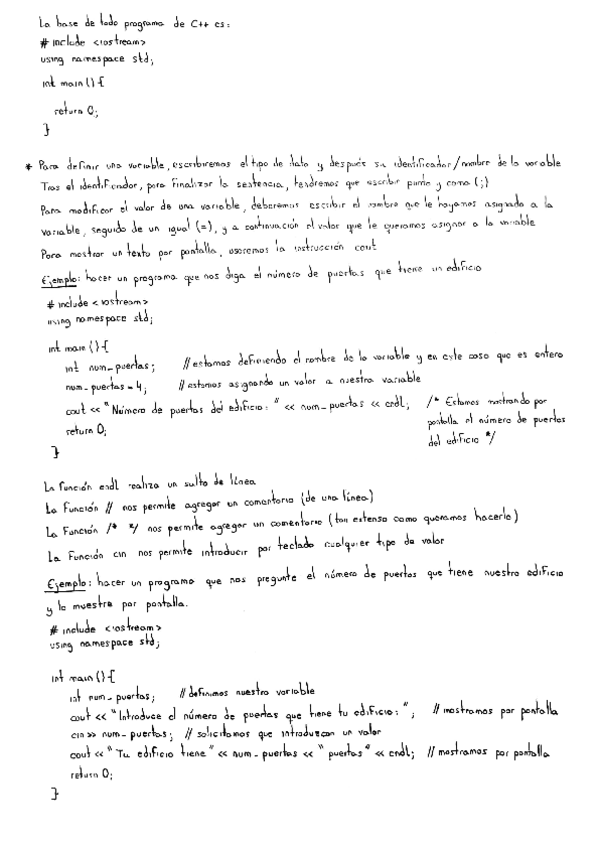 La base de todo programa de C++ es:
# include <iostream>
using namespace std;
int main () {
return 0;
}
* Para definir una variable, escribiremos el tipo de dato y después su identificador/nombre de la variable
Tras el identificador, para finalizar la sentencia, tendremos que escribir punto y coma (;)
Para modificar el valor de una variable, deberemos escribir el nombre que le hayamos asignado a la
variable, seguido de un igual (=), y a continuación el valor que le queramos asignar a la variable
Para mostrar un texto por pantalla, usaremos la instrucción cout
Ejemplo: hacer un programa que nos diga el número de puertas que tiene un edificio
# include <iostream>
using namespace std;
int main () {
int num_puertas; // estamos definiendo el nombre de la variable y en este caso que es entero
num_puertas = 4; // estamos asignando un valor a nuestra variable
cout << "Número de puertas del edificio: " << num_puertas << endl; /* Estamos mostrando por
pantalla el número de puertas
return 0;
del edificio */
}
La función endl realiza un salto de línea
La función // nos permite agregar un comentario (de una línea)
La función /* */ nos permite agregar un comentario (tan extenso como queramos hacerlo)
La función cin nos permite introducir por teclado cualquier tipo de valor
Ejemplo: hacer un programa que nos pregunte el número de puertas que tiene nuestro edificio
y lo muestre por pantalla.
# include <iostream>
using namespace std;
int main () {
int num_puertas; // definimos nuestra variable
cout << "Introduce el número de puertas que tiene tu edificio: "; // mostramos por pantalla
cin >> num_puertas; // solicitamos que introduzcan un valor
cout << "Tu edificio tiene " << num_puertas << " puertas" << endl; // mostramos por pantalla
return 0;
}